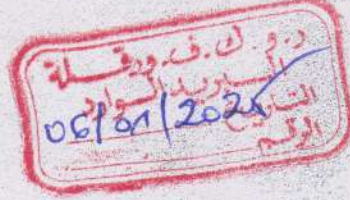 د.و.ك.ف.ورقلة
البريد الوارد
التاريخ
06/01/2025
الرقم